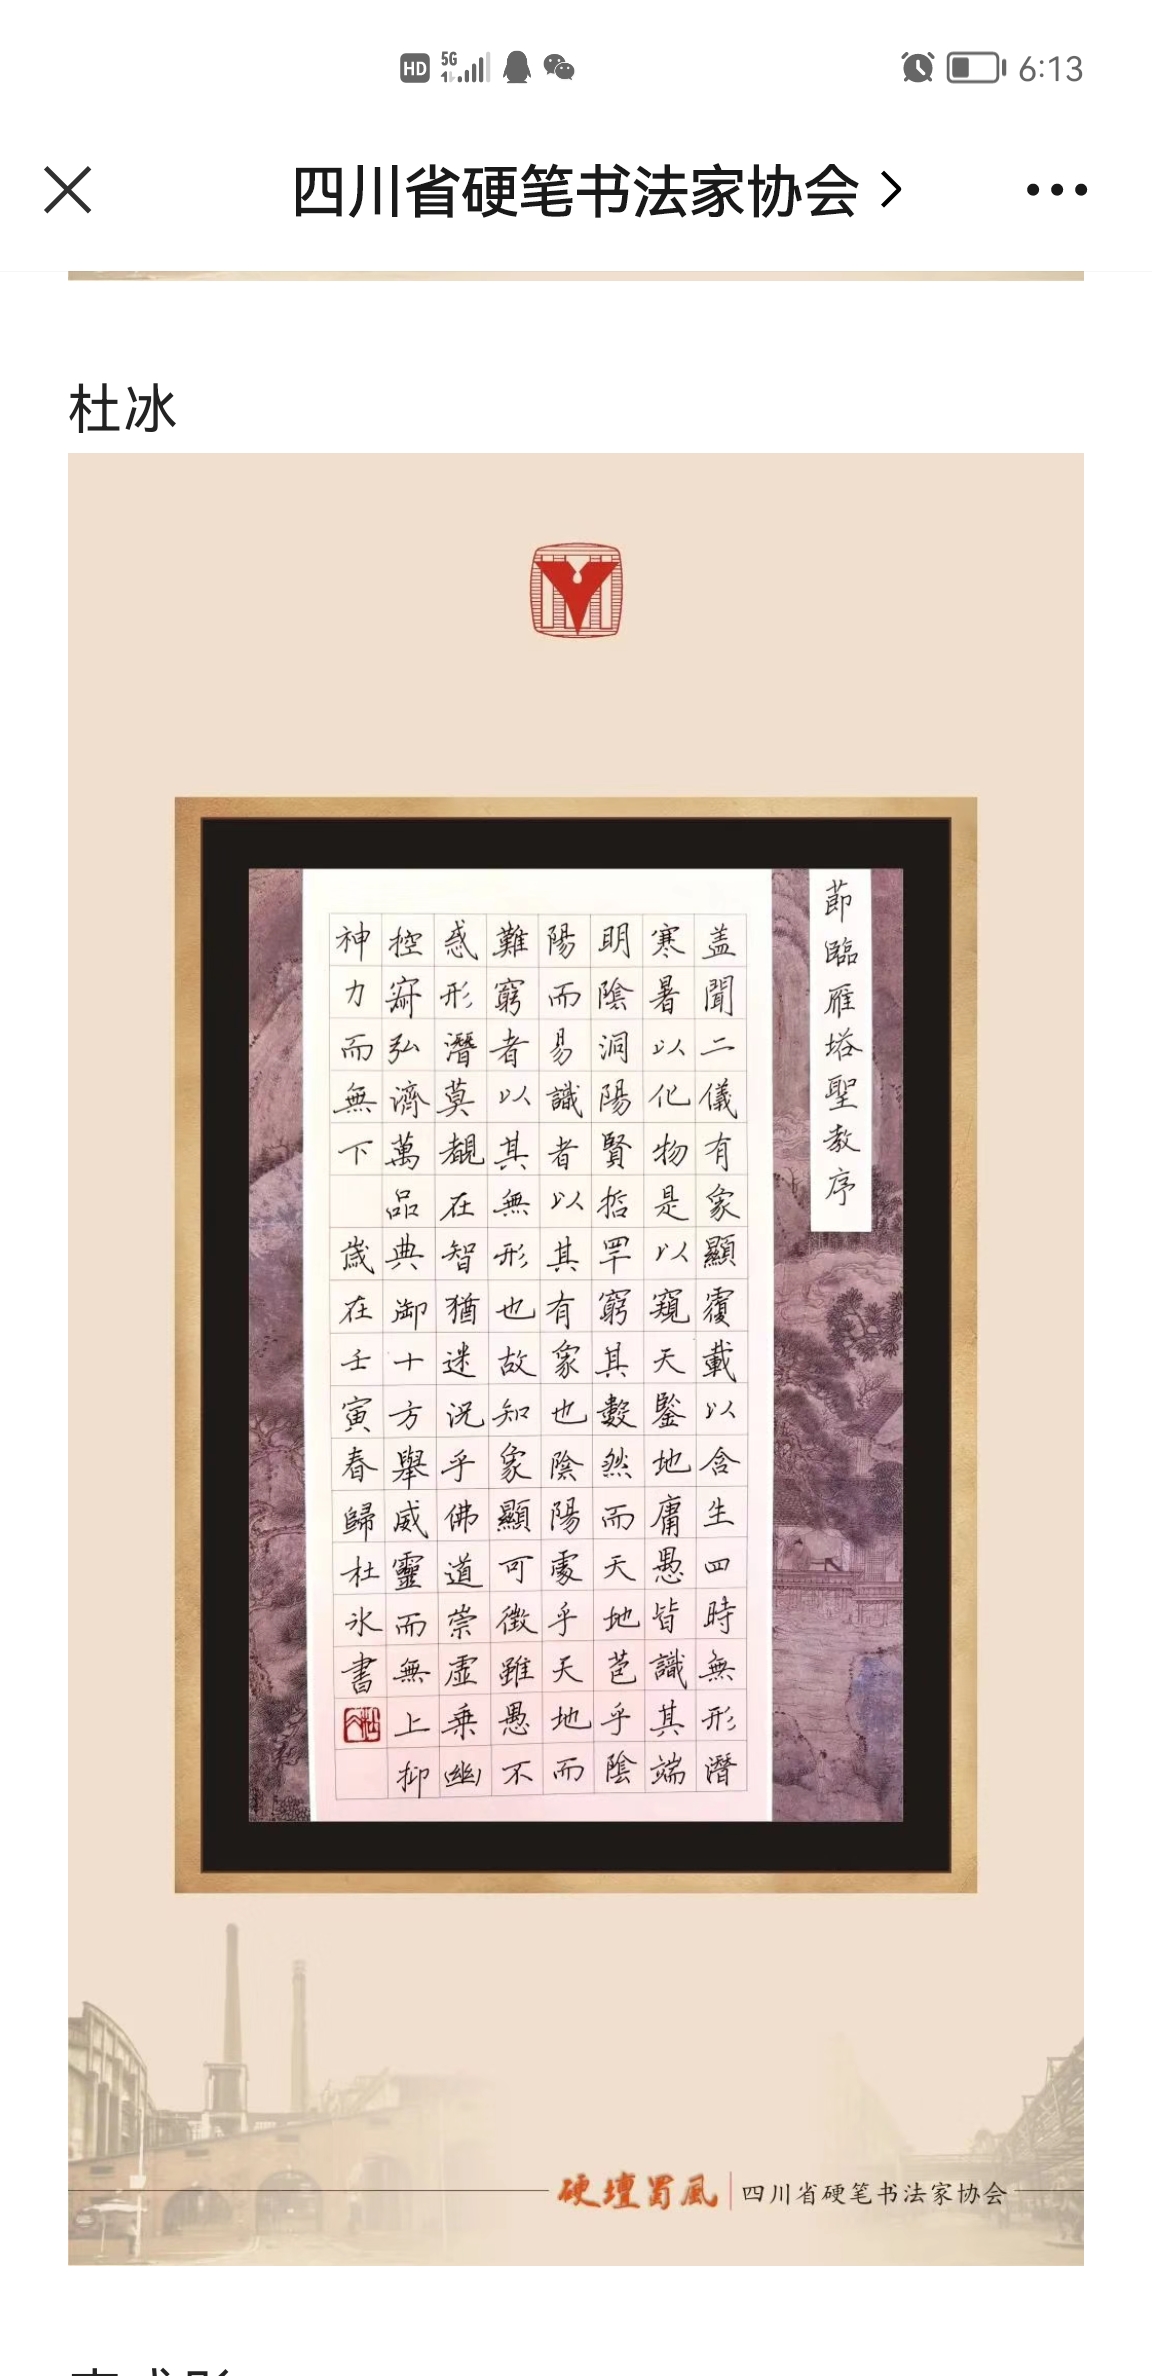 HD 5G 6:13
四川省硬笔书法家协会 >
杜冰
節臨雁塔聖教序
盖聞二儀有象顯覆載以含生四時無形潛
寒暑以化物是以窺天鑒地庸愚皆識其端
明陰洞陽賢哲罕窮其數然而天地苞乎陰
陽而易識者以其有象也陰陽處乎天地而
難窮者以其無形也故知象顯可徵雖愚不
惑形潛莫覩在智猶迷況乎佛道崇虛乗幽
控寂弘濟萬品典御十方舉威靈而無上抑
神力而無下
歲在壬寅春歸杜冰書
硬壇蜀風 四川省硬笔书法家协会